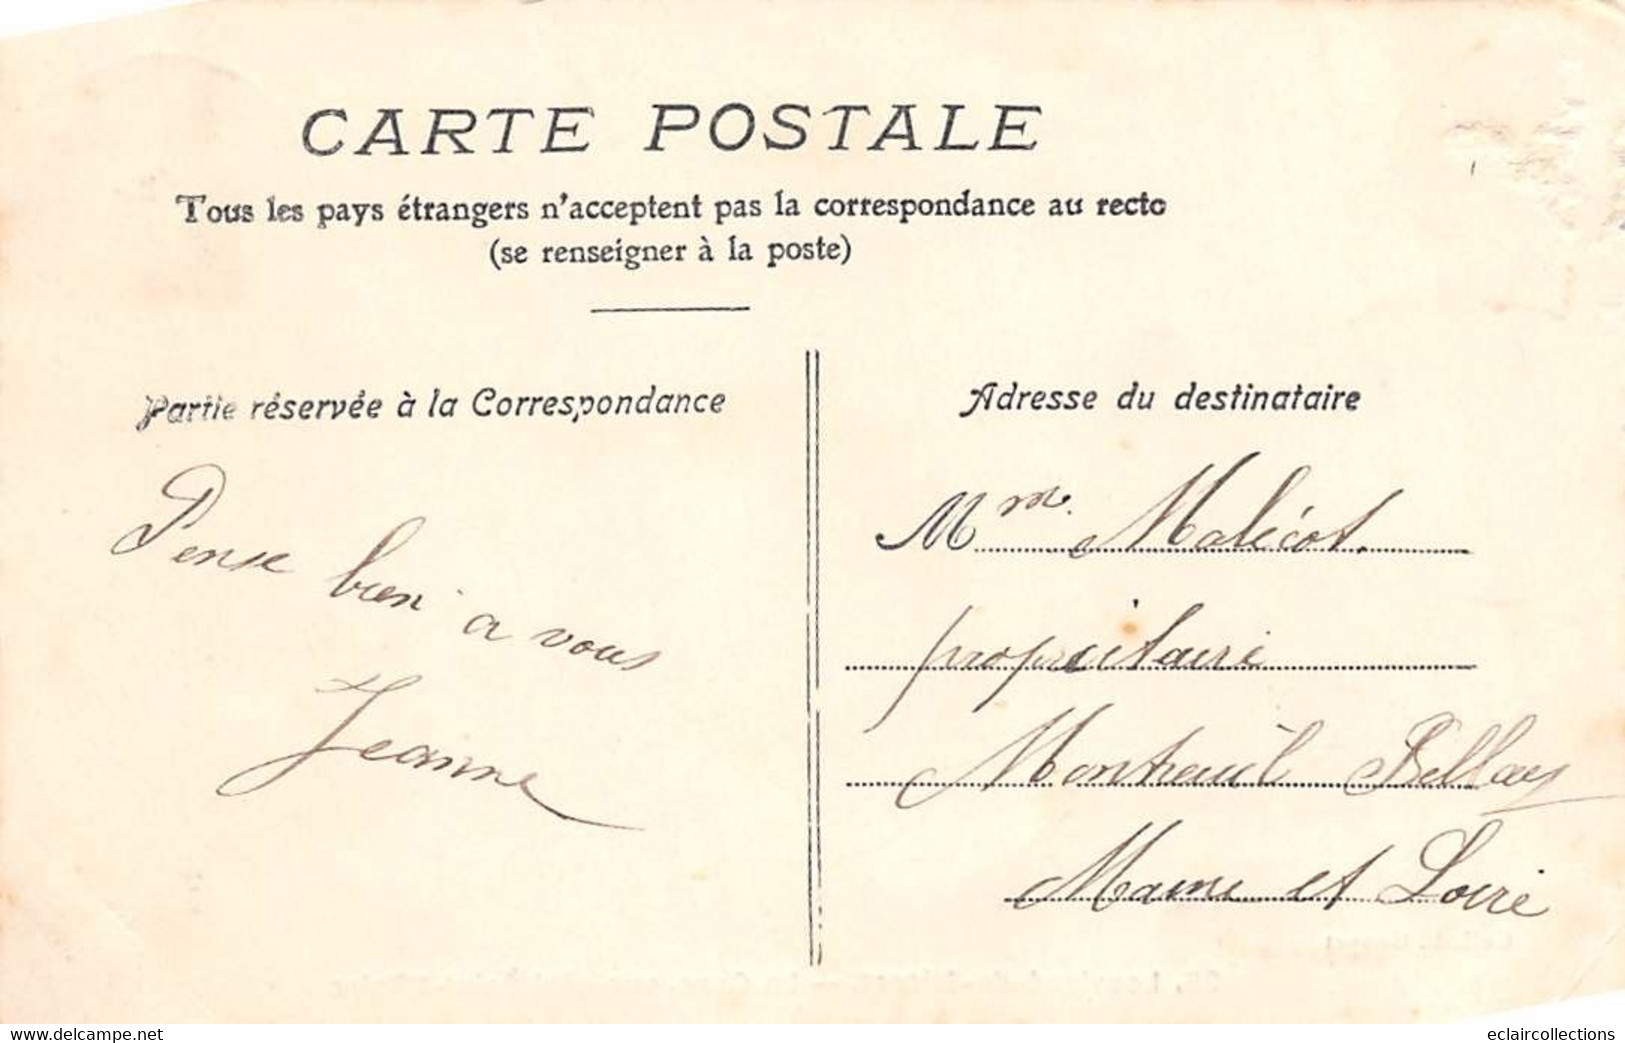 CARTE POSTALE
Tous les pays étrangers n'acceptent pas la correspondance au recto
(se renseigner à la poste)
Partie réservée à la Correspondance
Adresse du destinataire
Pense bien a vous
Jeanne
Mme. Malécot
propriétaire
Montreuil Bellay
Maine et Loire
www.delcampe.net
eclaircollections